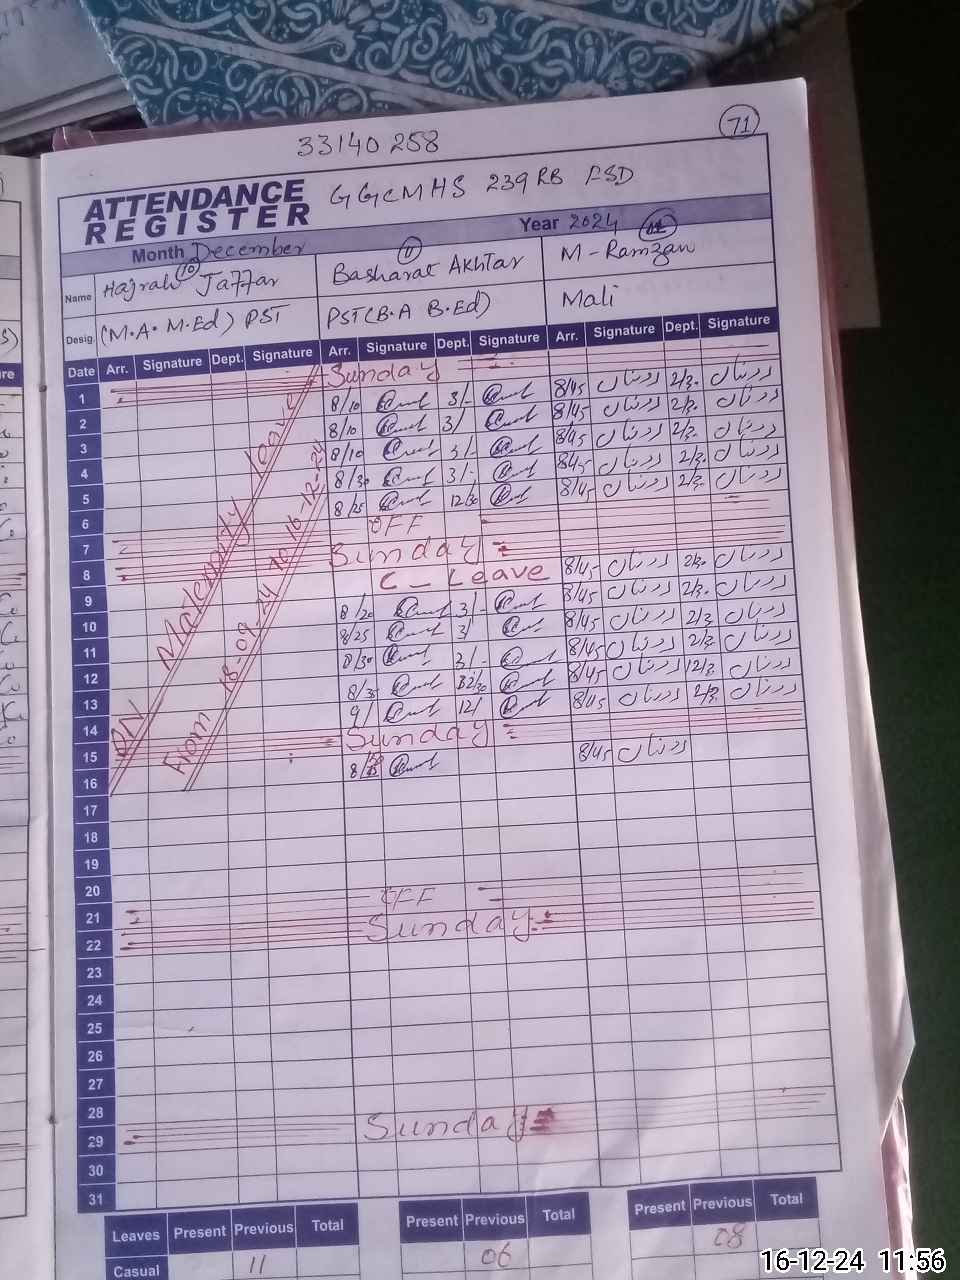 71
33140258
ATTENDANCE REGISTER GGCMHS 239 RB FSD
Month December Year 2024
Name Hajrah Jaffar 10 Basharat Akhtar 11 M-Ramzan 12
Desig. (M.A. M.Ed) PST PST(B.A B.Ed) Mali
Date Arr. Signature Dept. Signature Arr. Signature Dept. Signature Arr. Signature Dept. Signature
1 Sunday
2 8/10 3/- 8/45 رمضان 2/30 رمضان
3 8/10 3/ 8/45 رمضان 2/30 رمضان
4 8/10 3/- 8/45 رمضان 2/30 رمضان
5 8/30 3/- 8/45 رمضان 2/30 رمضان
6 8/25 12/30 8/45 رمضان 2/30 رمضان
7 OFF
8 Sunday
9 C - Leave 8/45 رمضان 2/30 رمضان
10 8/20 3/- 8/45 رمضان 2/30 رمضان
11 8/25 3/ 8/45 رمضان 2/30 رمضان
12 8/30 3/- 8/45 رمضان 2/30 رمضان
13 8/35 12/30 8/45 رمضان 12/30 رمضان
14 9/ 12/ 8/45 رمضان 2/30 رمضان
15 Sunday
16 8/45 رمضان
ON Maternity leave
From 18-09-24 To 16-12-24
17
18
19
20
21 OFF
22 Sunday
23
24
25
26
27
28
29 Sunday
30
31
Leaves Present Previous Total Present Previous Total Present Previous Total
Casual 11 06 08
16-12-24 11:56